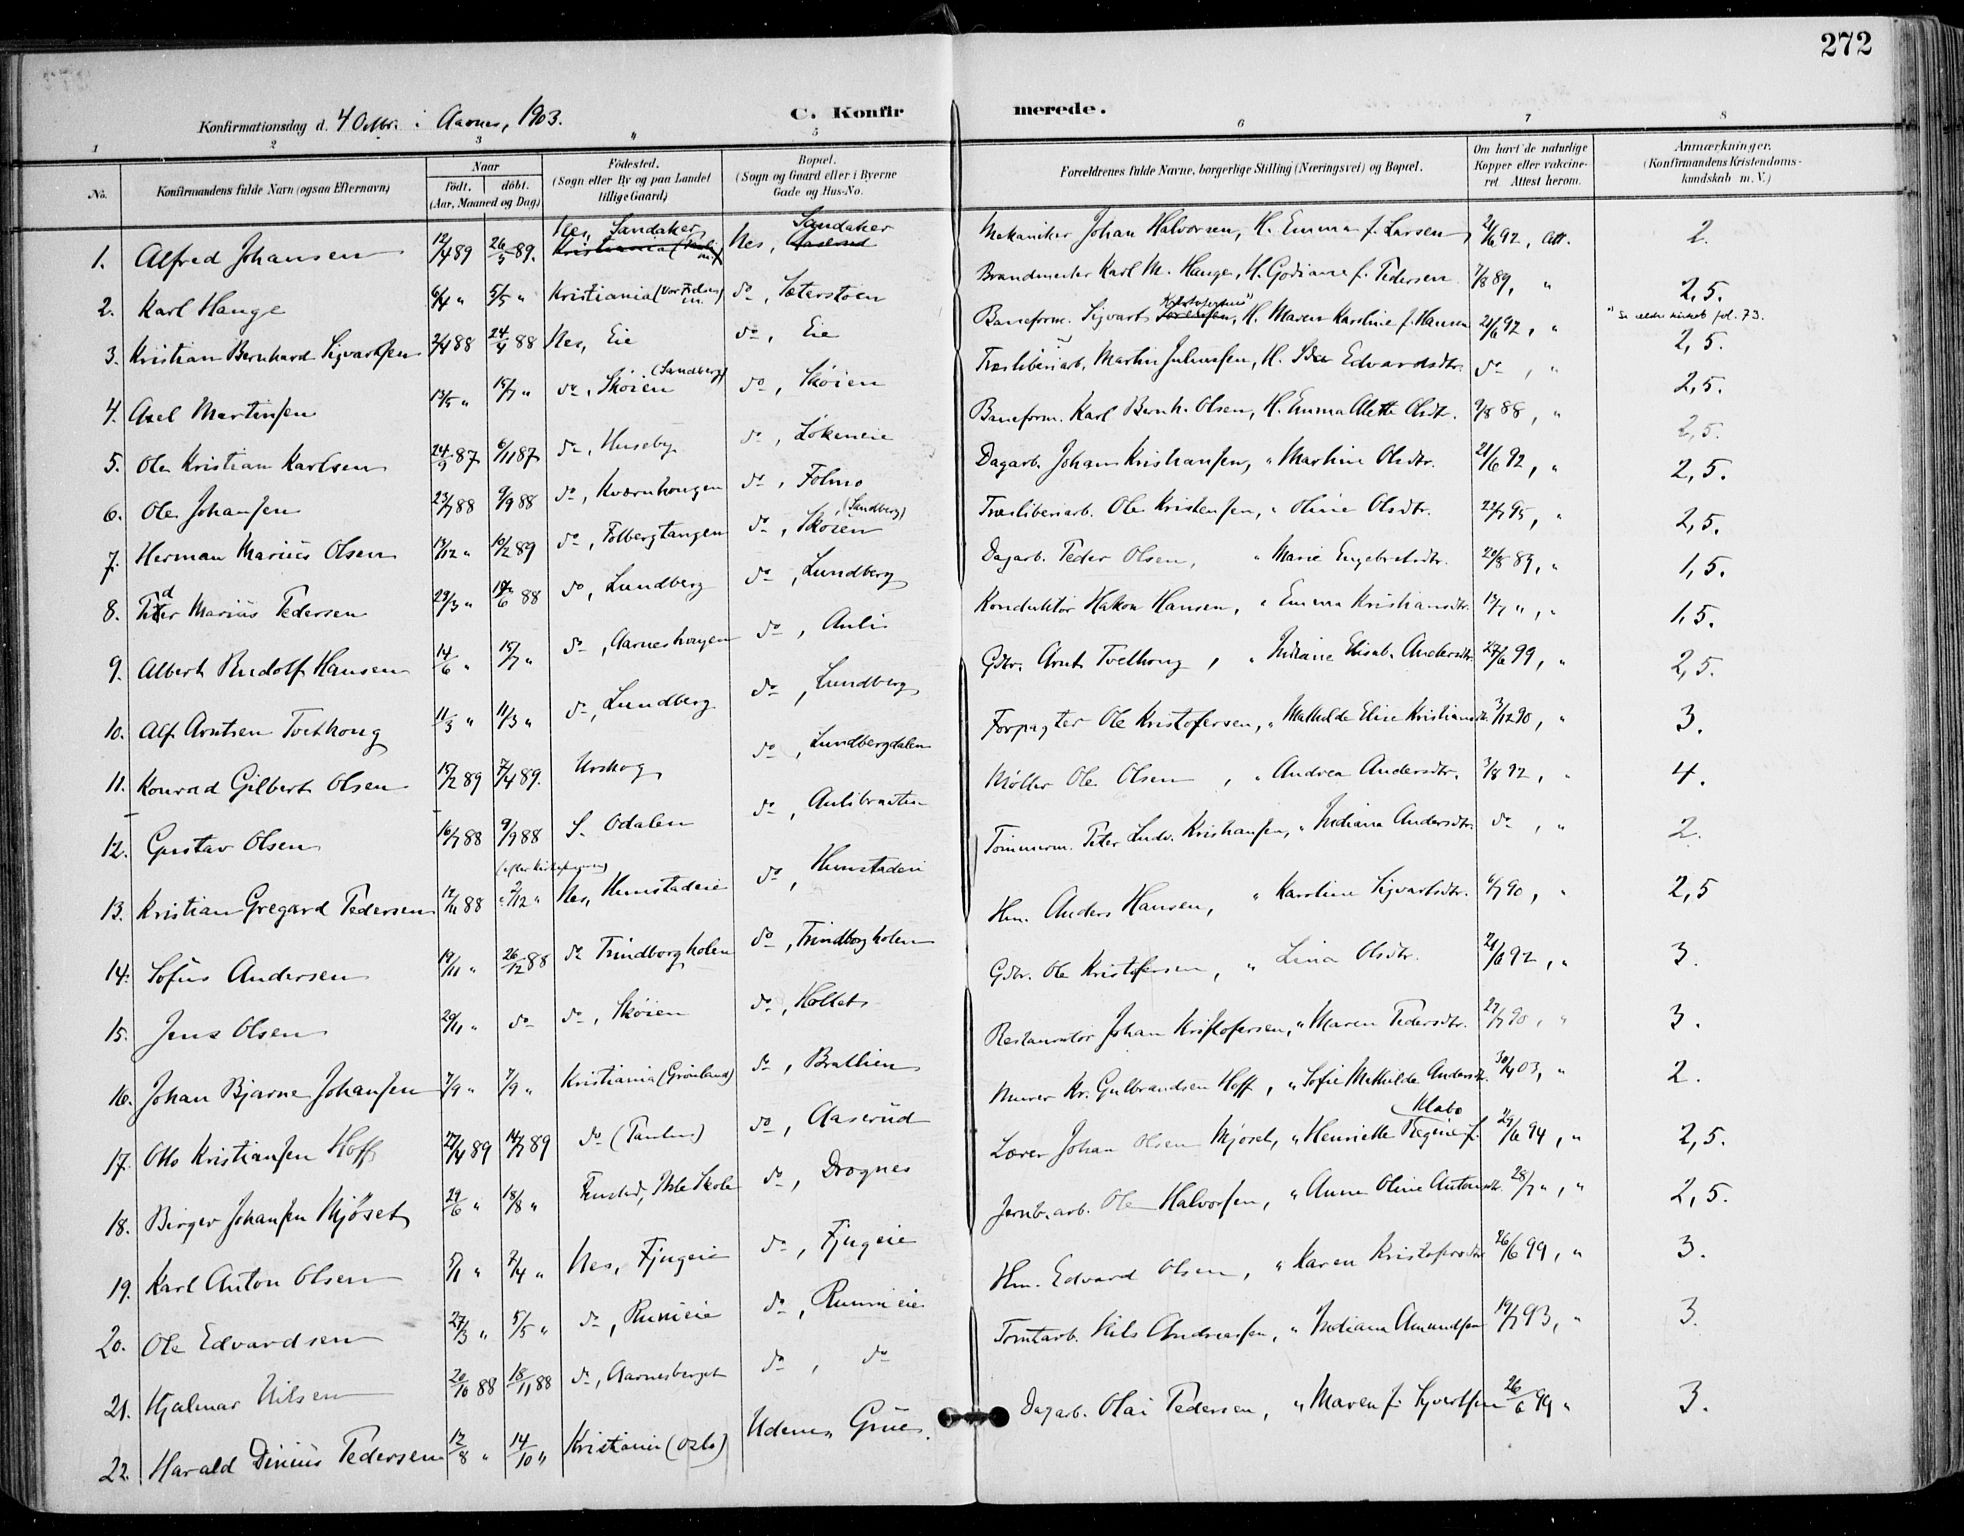 272
Konfirmationsdag d. 4 Octbr. i Aarnes, 1903.
C. Konfir merede.
1 2 3 5 6 7 8
No.
Konfirmandens fulde Navn (ogsaa Efternavn)
Naar
født. døbt.
(Aar, Maaned og Dag)
Fødested.
(Sogn eller By og paa Landet
tillige Gaard)
Bopæl.
(Sogn og Gaard eller i Byerne
Gade og Hus-No.
Forældrenes fulde Navne, borgerlige Stilling (Næringsvei) og Bopæl.
Om havt de naturlige
Kopper eller vakcine-
ret. Attest herom.
Anmærkninger.
(Konfirmandens Kristendoms-
kundskab m. V.)
1. Alfred Johansen 12/4 89 26/5 89. Nes, Sandaker Kristiania Nes, Sandaker Mekaniker Johan Halvorsen, H. Emma f. Larsen 21/6 92, Att. 2.
2. Karl Hauge 6/4 " 5/5 " Kristiania (Vor Frelsers m.) do, Sæterstøen Brandmester Karl M. Hauge, H. Godiane f. Pedersen 7/8 89, " 2,5.
3. Kristian Bernhard Sigvartsen 2/4 88 24/4 88 Nes, Eie do, Eie Baneform. Sigvart Sørensen, H. Maren Karoline f. Hansen 21/6 92, " 2,5. " Se ældre kirkeb. fol. 73.
4. Axel Martinsen 13/5 " 15/7 " do, Skøien (Sandberg) do, Skøien Træsliberiarb. Martin Juliussen, H. Edvardsdtr. do, " 2,5.
5. Ole Kristian Karlsen 24/9 87 6/11 87 do, Huseby do, Løkeneie Baneform. Karl Bernh. Olsen, H. Emma Alette Olsdtr. 9/8 88, " 2,5.
6. Ole Johansen 23/7 88 9/9 88 do, Kværnhougen do, Folmo Dagarb. Johan Kristiansen, " Martine Olsdtr. 21/6 92, " 2,5.
7. Herman Marius Olsen 13/12 " 10/2 89 do, Folbergtangen do, Skøien (Sandberg) Træsliberiarb. Ole Kristensen, " Oline Olsdtr. 22/7 95, " 2,5.
8. Peder Marius Pedersen 29/3 " 17/6 88 do, Lundberg do, Lundberg Dagarb. Peder Olsen, " Marie Engebretsdtr. 20/8 89, " 1,5.
9. Albert Rudolf Hansen 14/6 " 15/7 " do, Aarneshaugen do, Auli Konduktør Hakon Hansen, " Emma Kristiansdtr. 13/7 ", " 1,5.
10. Alf Arntsen Tvethoug 11/3 " 11/3 " do, Lundberg do, Lundberg Gbr. Arnt Tvethoug, " Indiane Elisab. Andersdtr. 27/6 99, " 2,5.
11. Konrad Gilbert Olsen 15/2 89 7/4 89. Urskog do, Lundbergdalen Forpagter Ole Kristofersen, " Mathilde Elise Kristiansdtr. 3/12 90, " 3.
12. Gustav Olsen 16/7 88 9/9 88 S. Odalen do, Aulibraaten Møller Ole Olsen, " Andrea Andersdtr. 3/8 92, " 4.
13. Kristian Gregard Pedersen 12/11 88 2/12 " Nes, Hennstadeie do, Hennstadeie Tømmerm. Peter Ludv. Kristiansen, " Indiana Andersdtr. do, " 2.
14. Sofus Andersen 19/11 " 26/12 88 do Trindborgholen do, Trindborgholen Hm. Anders Hansen, " Karoline Sigvartsdtr. 6/7 90, " 2,5
15. Jens Olsen 29/11 " do do, Skøien do, Hollet Gbr. Ole Kristofersen, " Lina Olsdtr. 21/6 92, " 3.
16. Johan Bjarne Johansen 7/9 " 7/9 " Kristiania (Grønland) do, Bratlien Restauratør Johan Kristofersen, " Maren Pedersdtr. 27/7 90, " 3.
17. Otto Kristiansen Hoff 27/4 89 14/7 89 do (Paulus) do, Aaserud Murer Kr. Gulbrandsen Hoff, " Sofie Mathilde Andersdtr. 30/4 03, " 2.
18. Birger Johansen Mjøset 29/6 " 18/8 " Skole do, Dragnes Lærer Johan Olsen Mjøset, " Henriette Regine f. Klabo 29/6 94, " 2,5.
19. Karl Anton Olsen 5/1 " 7/4 " Nes, Fjugeie do, Fjugeie Jernb.arb. Ole Halvorsen, " Anne Oline Antonsdtr. 28/7 ", " 2,5.
20. Ole Edvardsen 27/3 " 5/5 " do, Runieie do, Runnieie Hm. Edvard Olsen, " Karen Kristofersdtr. 26/6 99, " 3.
21. Hjalmar Nilsen 20/10 88 18/11 88 do, Aarnesberget do, do Tomtarb. Nils Andreassen, " Indiana Amundsen 19/7 93, " 3.
22. Harald Dinius Pedersen 12/8 " 14/10 " Kristiania (Oslo) Udenes Grue. Dagarb. Olai Pedersen, " Maren f. Syvertsen 26/6 99 " 3.